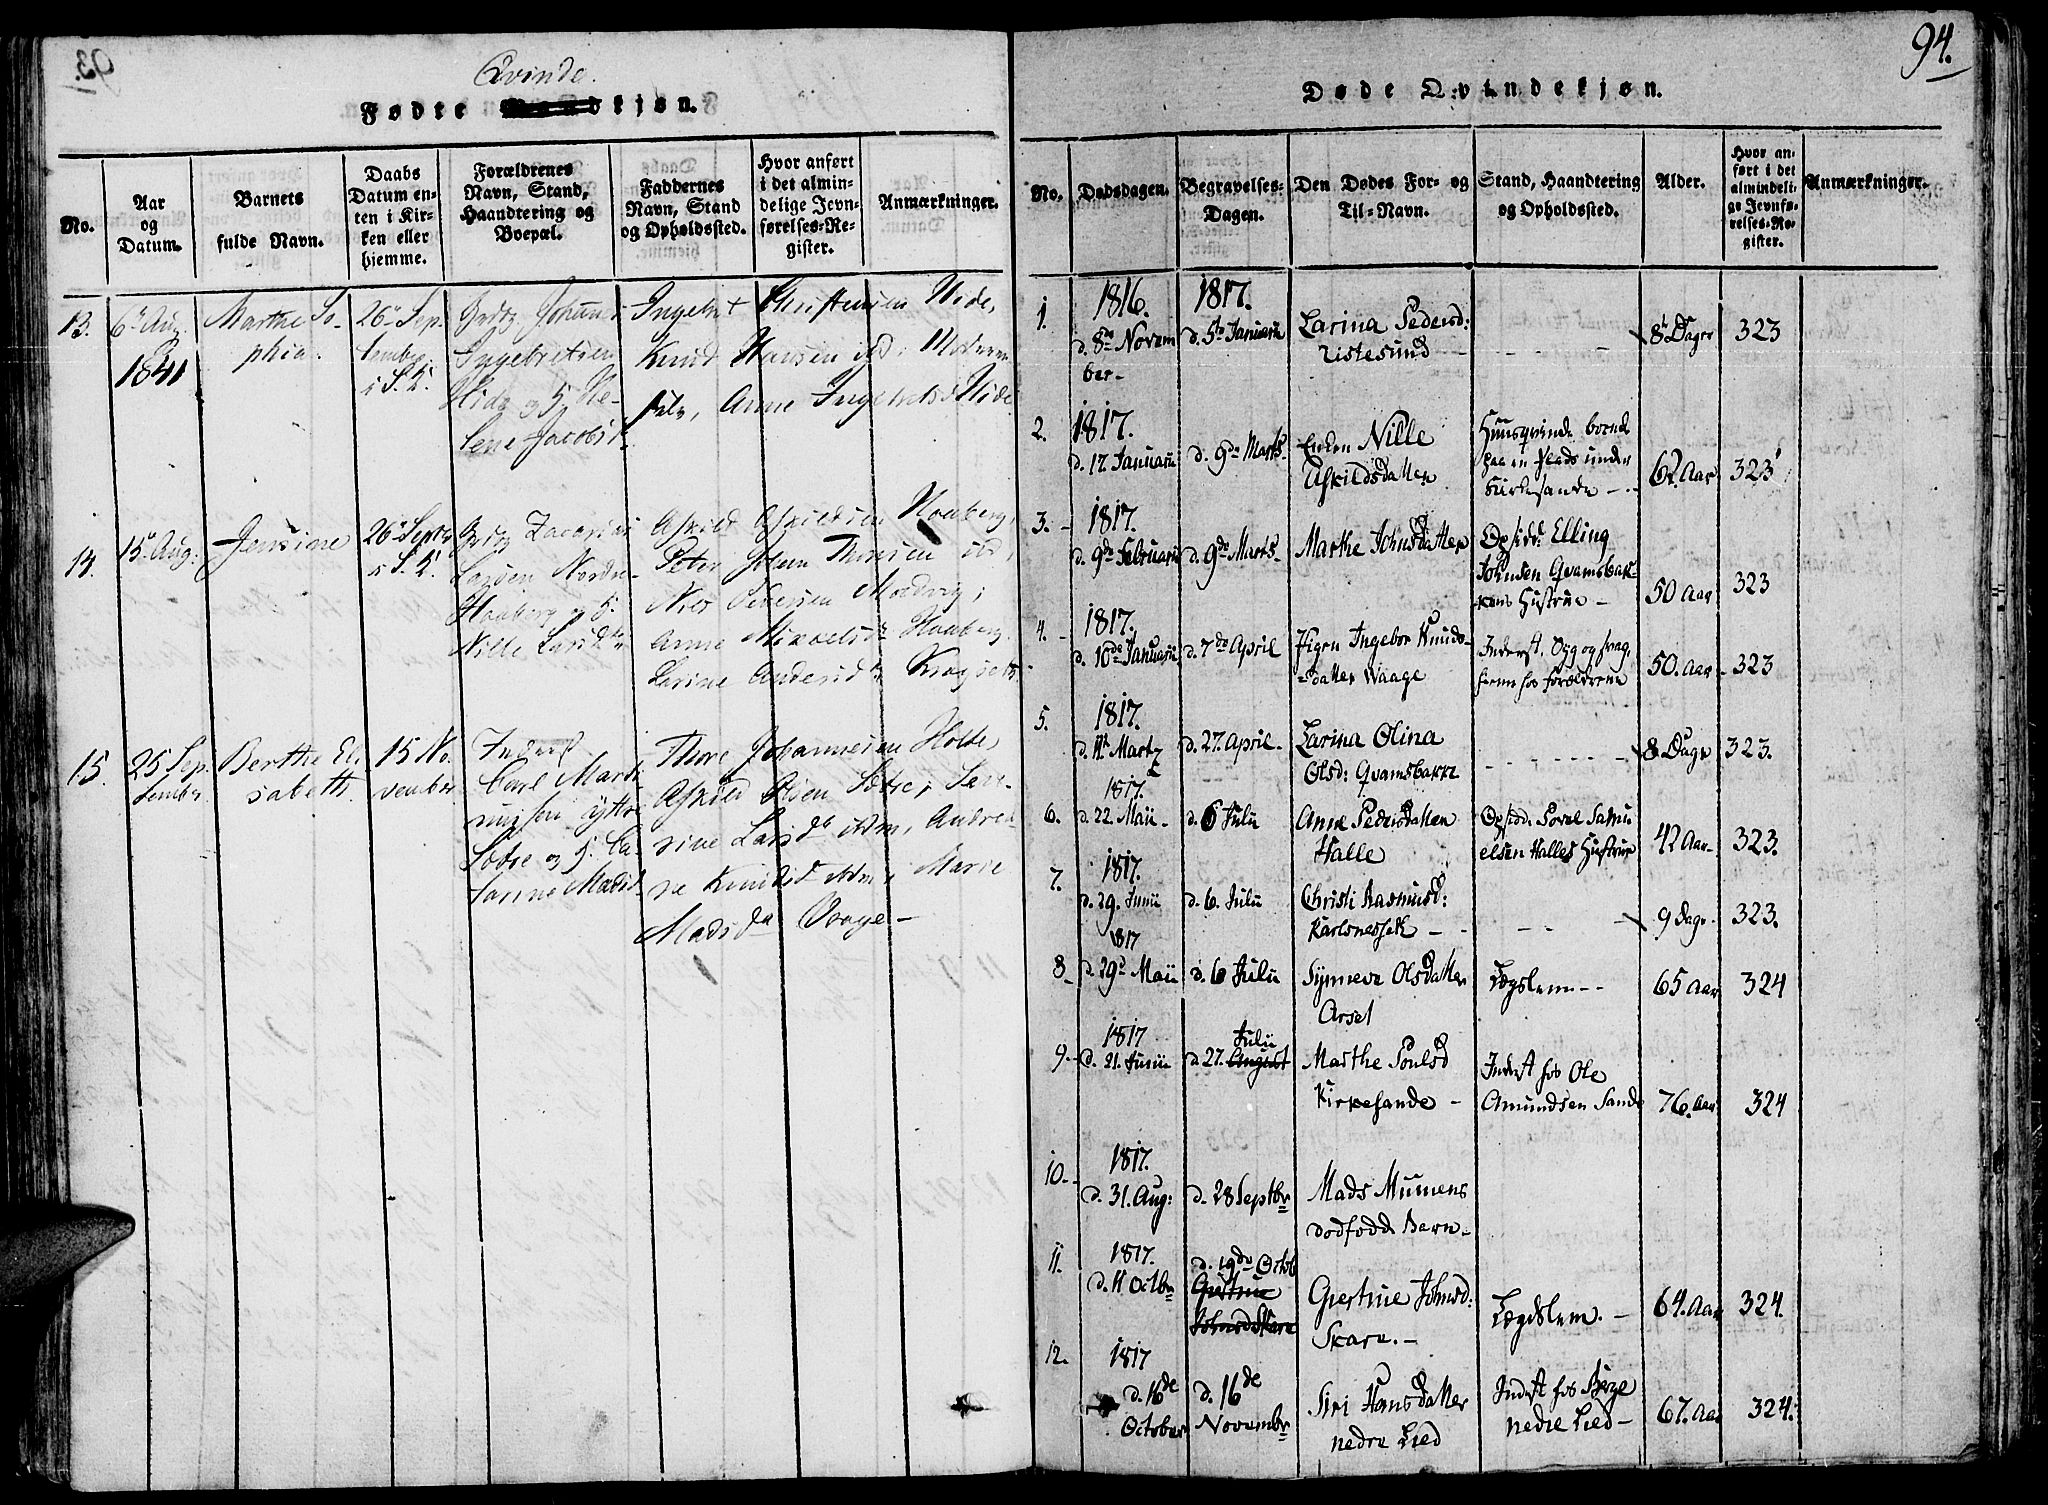 93.
Qvinde.
Fødte Mandkjøn.
No.
Aar og Datum.
Barnets fulde Navn.
Daabs Datum enten i Kirken eller hjemme.
Forældrenes Navn, Stand, Haandtering og Boepæl.
Faddernes Navn, Stand og Opholdssted.
Hvor anført i det almindelige Jevnførelses-Register.
Anmærkninger.
13.
6. Aug.
1841
Marthe So-
phia.
26 Sep-
tember
i S. K.
Ingebretsen
Hide og H. He-
lene Jacobsd.
Ingebrt Christensen Hide,
Knud Hansen ibd,
Anne Ingebretsd Hide
14.
15. Aug.
Jensine
26 Septr
i S. K.
Zacarias
Larsen Nordre
Haaberg og H.
Nille Larsdtr
Askild Askildsen Haaberg,
Peter Johan Thorsen ibd,
Niels Pedersen Mordvig;
Anne Mikkelsdr Haaberg
Larine Andersdr
15.
25 Sep-
tember
Berthe El-
sabeth.
15 No-
vember
Inderst
Carl Marti-
nussen Yttre
Sætre og H. Ca-
tarine Madsd.
Thore Johannesen Holte,
Askild Olsen Sætre, Seve-
rine Larsdr ibdm, Andrea-
ne Knudsd ibdm, Marie
Madsda Vaage –
94.
Døde Qvindekjøn.
No.
Dødsdagen.
Begravelses-Dagen.
Den Dødes For- og Til-Navn.
Stand, Haandtering og Opholdssted.
Alder.
Hvor anført i det almindelige Jevnførelses-Register.
Anmærkninger.
1.
1816.
d. 8de Novem
ber –
1817.
d. 5te Januarii
Larina Pedersd:
Ristesund
8t Dage
323
2.
1817.
d. 17. Januarii
d. 9de Marts
Enken Nille
Askildsdatter
Huusqvinde boende
paa en Plads under
Kirkesande –
62 Aar
323
3.
1817.
d. 9de Februarii
d. 9de Marts
Marthe Johnsdatter
Opsidd: Elling
Johnsen Qvamsbak-
kens Hustrue –
50 Aar
323
4.
1817.
d. 10de Januarii
d. 7de April
Pigen Ingebor Knuds-
datter Waage
Inderst, Syg og svag
hos Forældrene
50. Aar
323
5.
1817.
d. 11t Martz
d. 27. April
Larina Olina
Olsd: Qvamsbakke
8 Dage
323.
6.
1817.
d. 22. Maii
d. 6 Julii
Anne Pedersdatten
Halle
Opsidd. Sovel Samu
elsen Halles Hustrue
42 Aar
323.
7.
1817.
d. 29. Junii
d. 6. Julii
Christi Rasmusd:
Karlsnessek
9 Dage
323.
8.
1817
d. 29d Maii
d. 6 Julii
Synneva Olsdatter
Arset
Lægslem
65 Aar
324
9.
1817
d. 21. Junii
Julii
d. 27. August
Marthe Poulsd
Kirkesande –
Inderst hos Ole
Amundsen Sande
76. Aar
324
10.
1817.
d. 31. Aug:
d. 28 Septbr
Mads Mumens
dødfødde Barn –
11.
1817.
d. 11 Octbr
d. 19de Octob
Giertrue
Johnsd Skare
Giertrue Johnsd:
Skare. –
Lægdslem. –
64. Aar
324.
12.
1817
d. 16de
October
d. 16de
Novembr
Siri Hansdatter
nedre Lied
Inderst hos Børge
nedre Lied –
67. Aar
324.